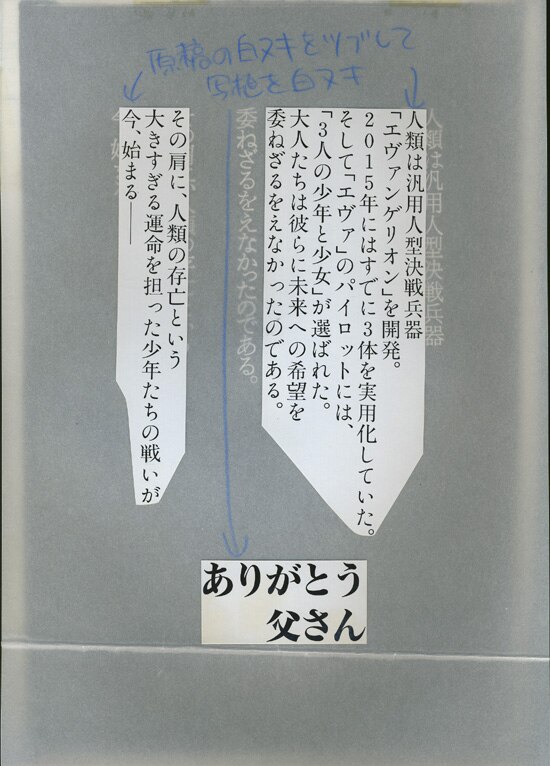 原稿の白ヌキをツブして
写植を白ヌキ
人類は汎用人型決戦兵器
人類は汎用人型決戦兵器
「エヴァンゲリオン」を開発。
2015年にはすでに3体を実用化していた。
そして「エヴァ」のパイロットには、
「3人の少年と少女」が選ばれた。
大人たちは彼らに未来への希望を
委ねざるをえなかったのである。
委ねざるをえなかったのである。
その肩に、人類の存亡という
大きすぎる運命を担った少年たちの戦いが
今、始まる――
ありがとう
父さん